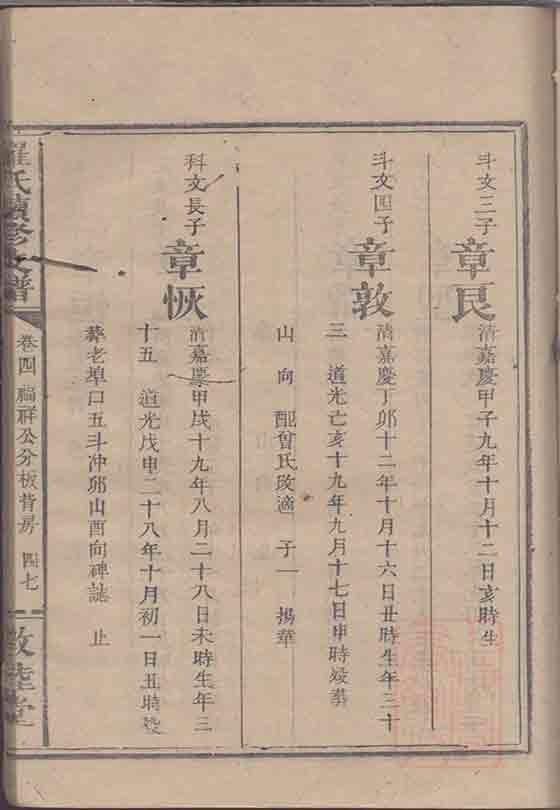 斗文三子
章艮
清嘉慶甲子九年十月十二日亥時生
斗文四子
章敦
清嘉慶丁卯十二年十月十六日丑時生年三十
三　道光己亥十九年九月十七日申時歿塟
山　向　配曾氏改適　子一　揚華
科文長子
章恢
清嘉慶甲戌十九年八月二十八日未時生年三
十五　道光戊申二十八年十月初一日丑時歿
葬老埠口五斗冲卯山酉向碑誌　止
羅氏續修支譜
卷四　福祥公分板背房　四七
敦睦堂